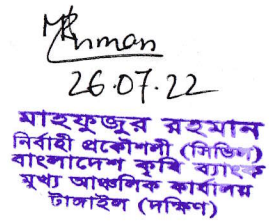 26.07.22
মাহফুজুর রহমান
নির্বাহী প্রকৌশলী (সিভিল)
বাংলাদেশ কৃষি ব্যাংক
মুখ্য আঞ্চলিক কার্যালয়
টাঙ্গাইল (দক্ষিণ)